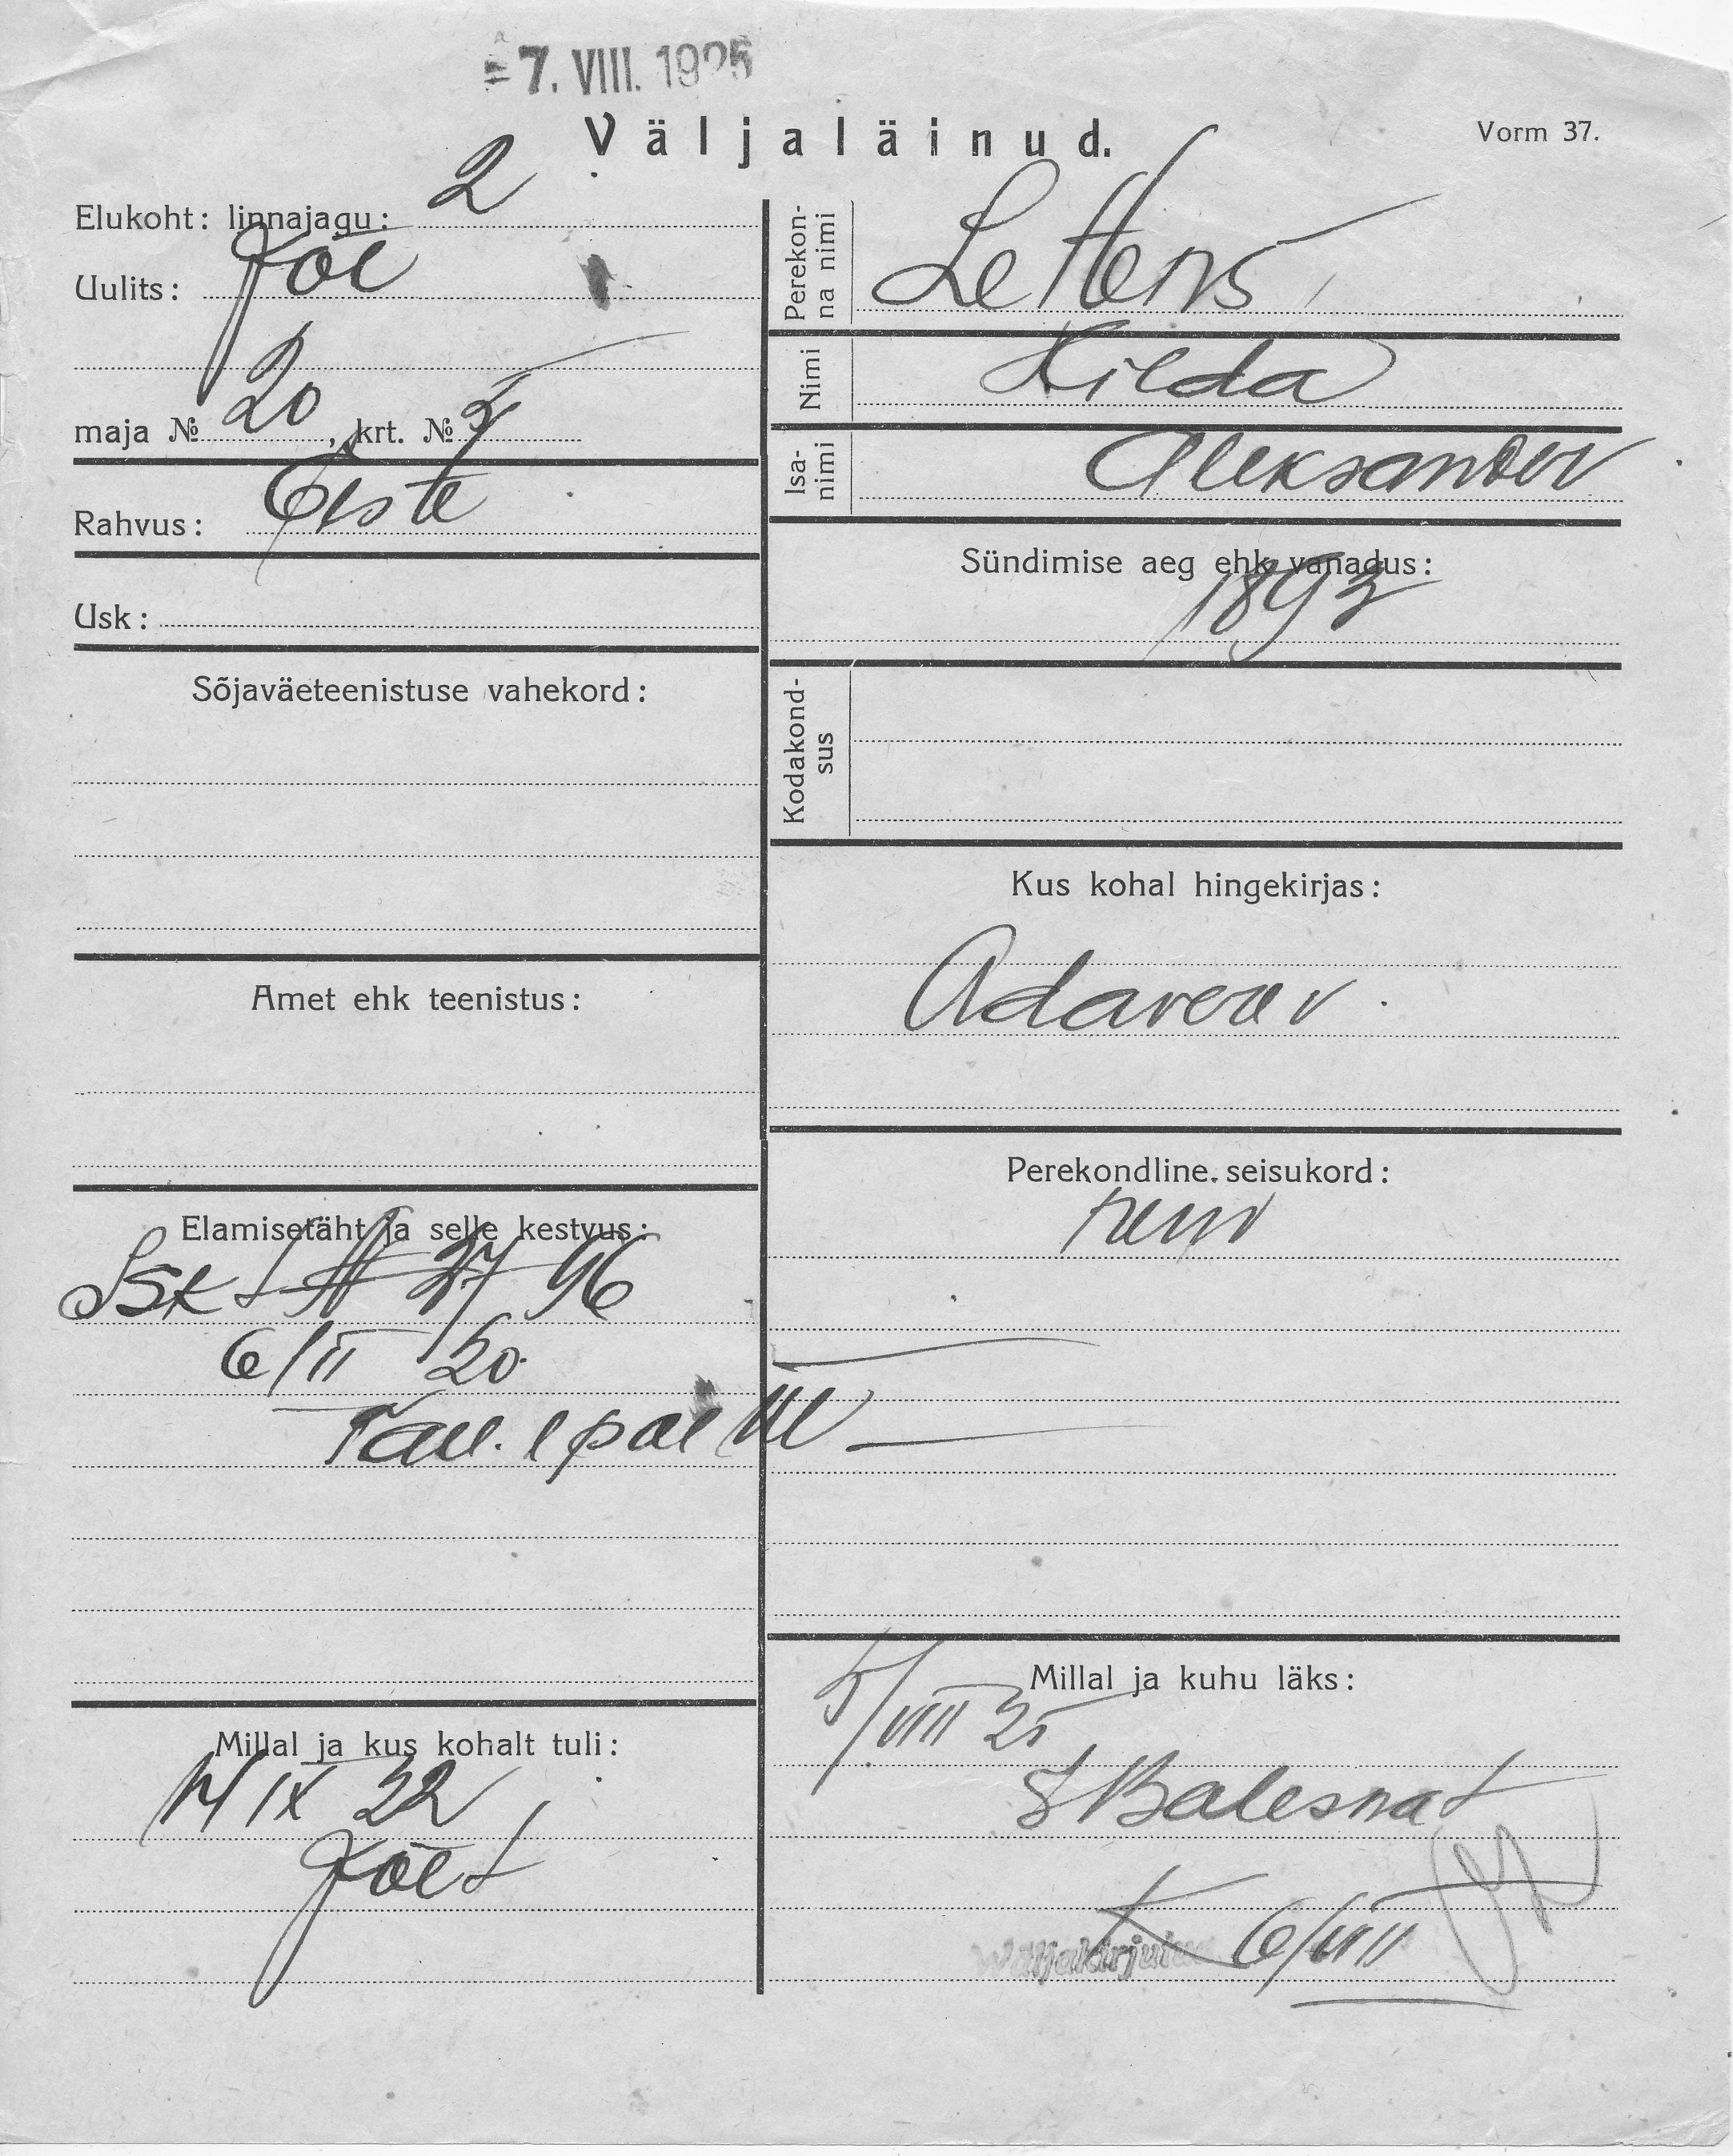 7. VIII. 1925
Väljaläinud.
Vorm 37.
Elukoht: linnajagu: 2
Uulits: Jõe
maja № 20, krt. № 5
Rahvus: Eeste
Usk:
Sõjaväeteenistuse vahekord:
Amet ehk teenistus:
Elamisetäht ja selle kestvus:
6/II 20
Millal ja kus kohalt tuli:
IX 22
Jõe t
Perekonna nimi
Nimi Hilda
Isanimi Aleksander
Sündimise aeg ehk vanadus:
1893
Kodakondsus
Kus kohal hingekirjas:
Adavere v.
Perekondline seisukord:
Millal ja kuhu läks:
5/VIII 25
Väljakirjutus 6/VIII